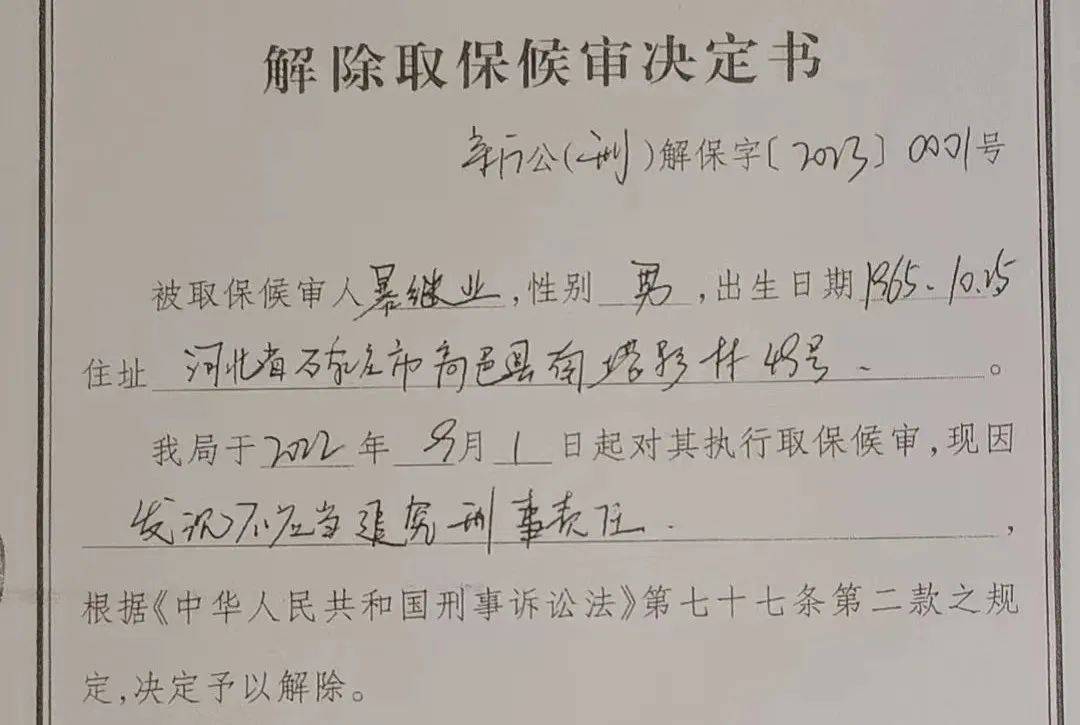 解除取保候审决定书
新行公(刑)解保字〔2023〕0001号
被取保候审人暴继业,性别 男 ,出生日期1965.10.25
住址 河北省石家庄市高邑县南塔影村48号 。
我局于2022年 9月 1 日起对其执行取保候审,现因
发现不应当追究刑事责任.,
根据《中华人民共和国刑事诉讼法》第七十七条第二款之规
定,决定予以解除。